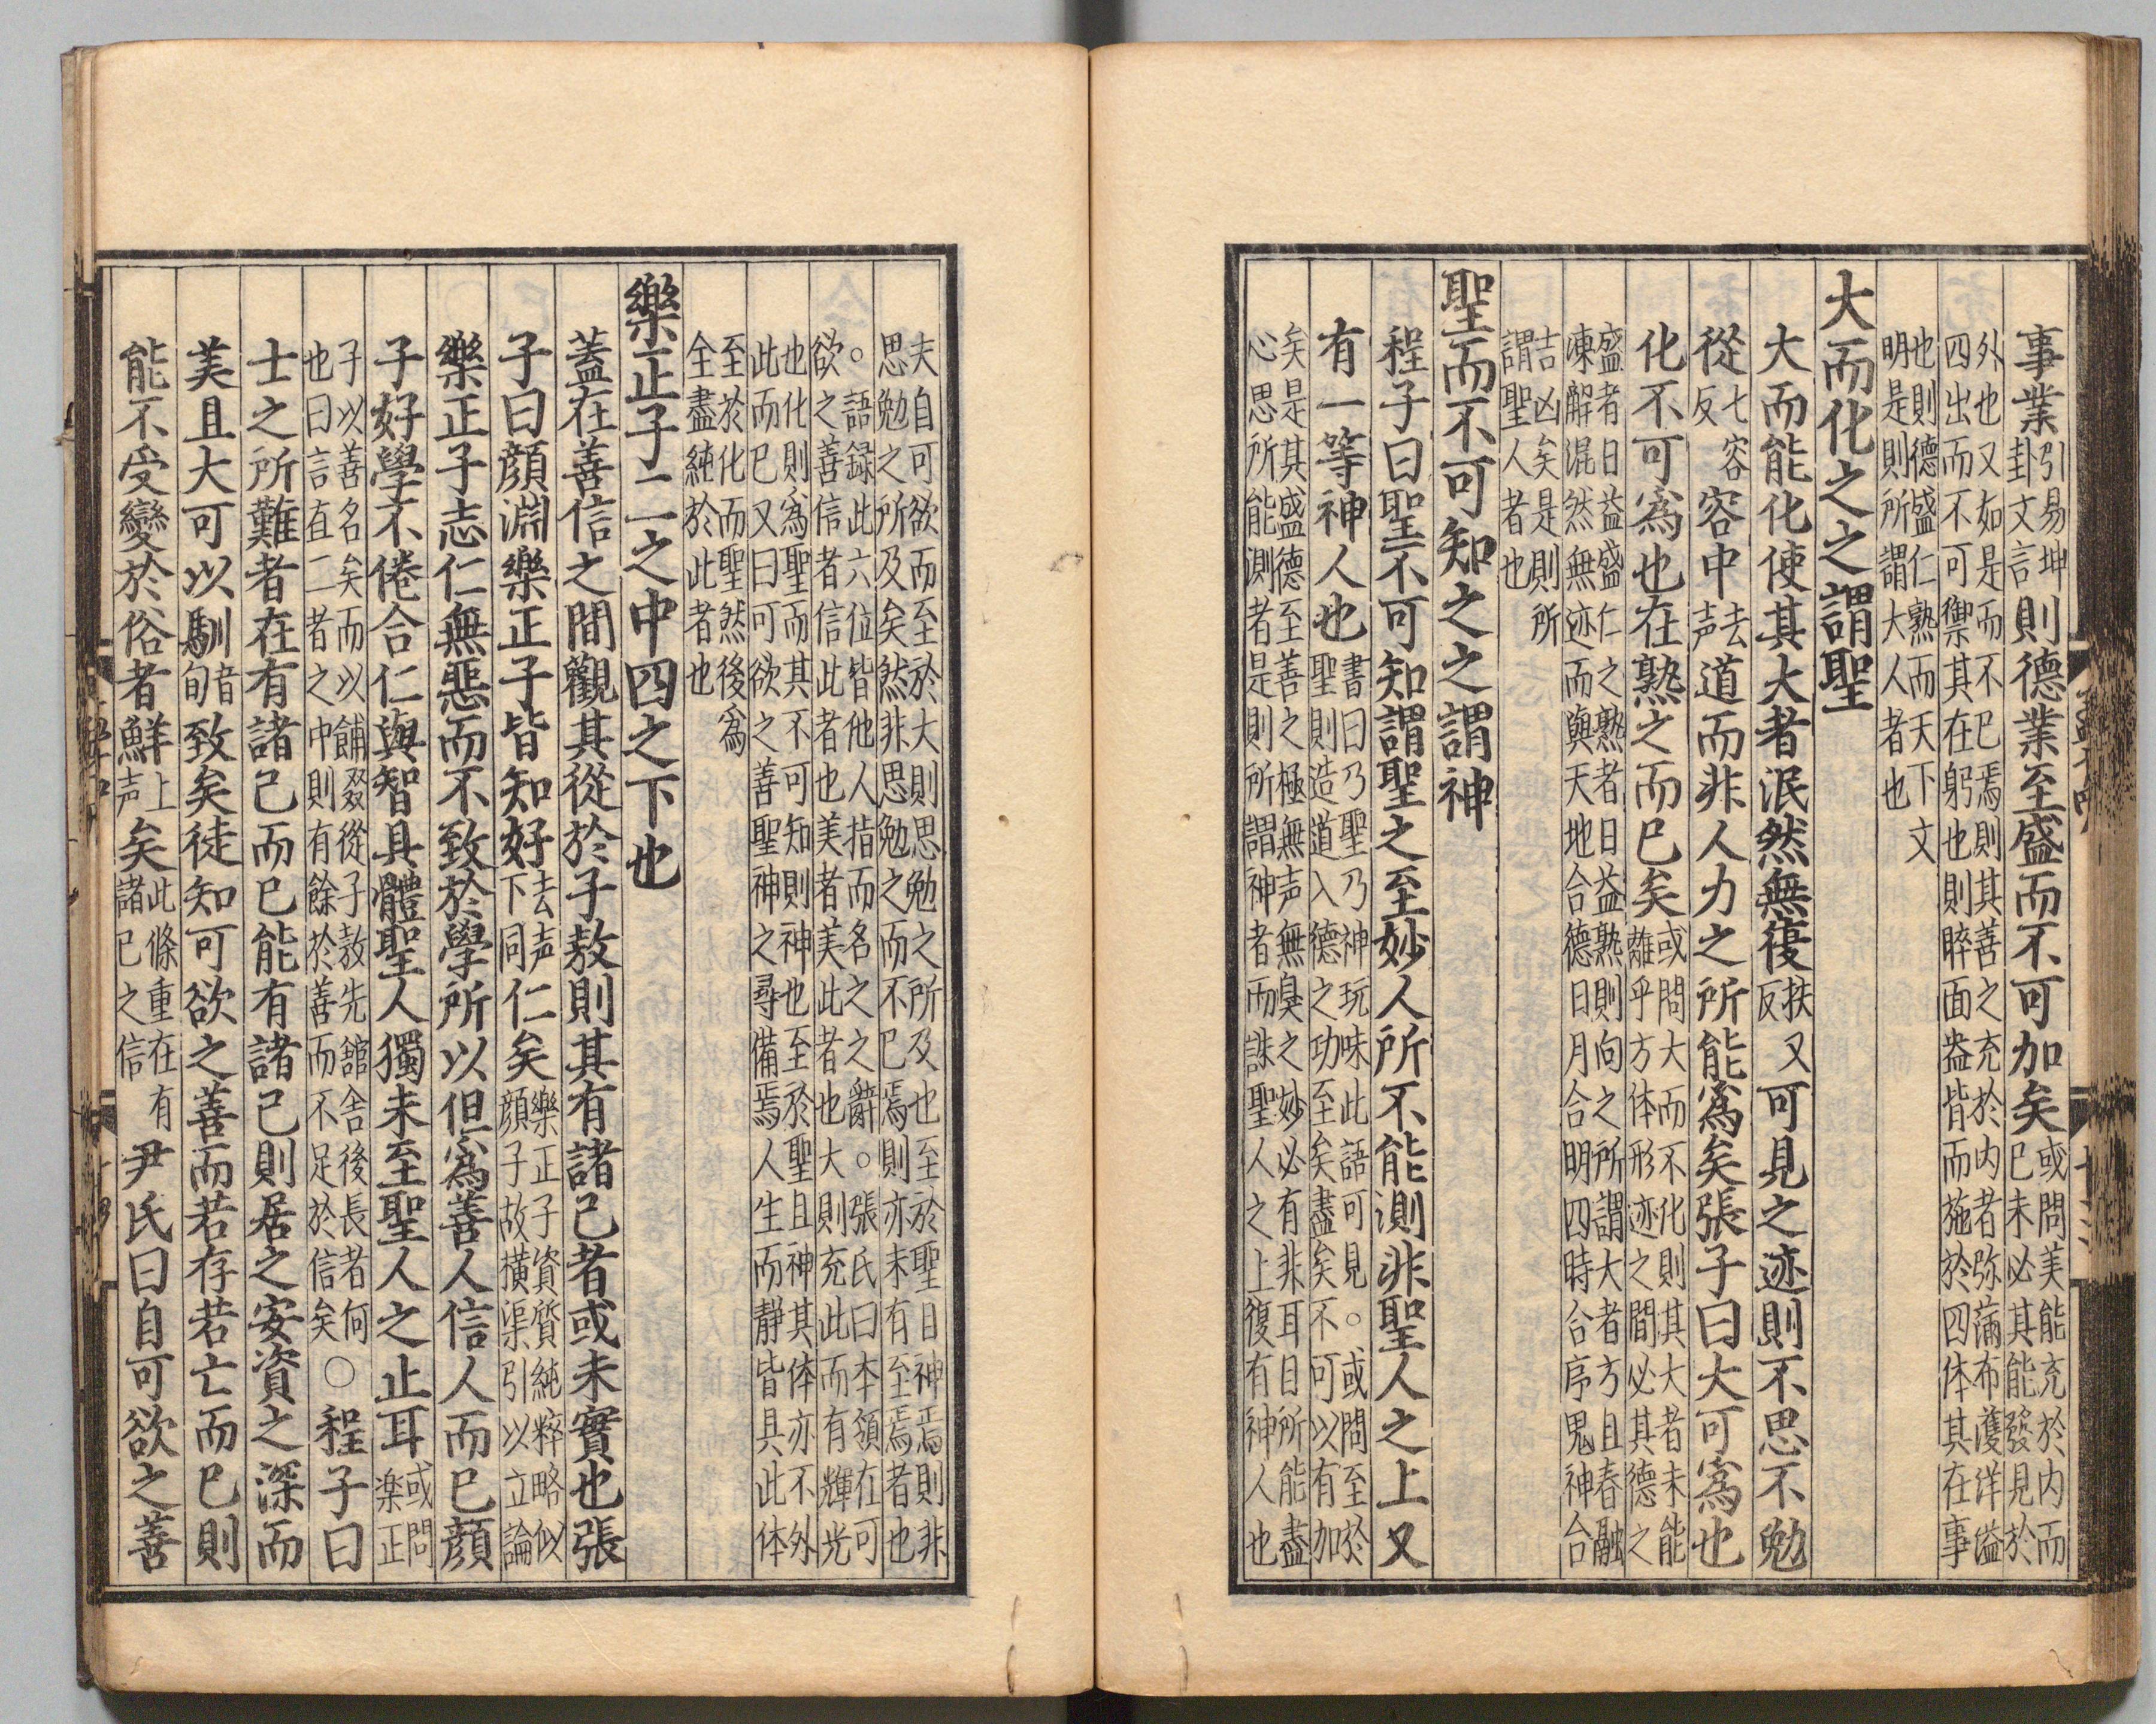 事業引易坤卦文言則德業至盛而不可加矣或問美能充於內而已未必其能發見於
外也又如是而不已焉則其善之充於內者弥滿布濩洋溢
四出而不可禦其在躬也則睟面盎背而施於四体其在事
也則德盛仁熟而天下文
明是則所謂大人者也
大而化之之謂聖
大而能化使其大者泯然無復扶又反可見之迹則不思不勉
從七容反容中去声道而非人力之所能為矣張子曰大可為也
化不可為也在熟之而已矣或問大而不化則其大者未能離乎方体形迹之間必其德之
盛者日益盛仁之熟者日益熟則向之所謂大者方且春融
凍解混然無迹而與天地合德日月合明四時合序鬼神合
吉凶矣是則所
謂聖人者也
聖而不可知之之謂神
程子曰聖不可知謂聖之至妙人所不能測非聖人之上又
有一等神人也書曰乃聖乃神玩味此語可見。或問至於聖則造道入德之功至矣盡矣不可以有加
矣是其盛德至善之極無声無臭之妙必有非耳目所能盡
心思所能測者是則所謂神者而誹聖人之上復有神人也
夫自可欲而至於大則思勉之所及也至於聖曰神焉則非
思勉之所及矣然非思勉之而不已焉則亦未有至焉者也
。語録此六位皆他人指而名之之辭。張氏曰本領在可
欲之善信者信此者也美者美此者也大則充此而有輝光
也化則為聖而其不可知則神也至於聖且神其体亦不外
此而已又曰可欲之善聖神之尋備焉人生而靜皆具此体
至於化而聖然後為
全盡純於此者也
樂正子二之中四之下也
蓋在善信之間觀其從於子敖則其有諸己者或未實也張
子曰顏淵樂正子皆知好去声下同仁矣樂正子資質純粹略似顏子故橫渠引以立論
樂正子志仁無惡而不致於學所以但為善人信人而已顏
子好學不倦合仁與智具體聖人獨未至聖人之止耳或問楽正
子以善名矣而以餔啜從子敖先舘舍後長者何
也曰言直二者之中則有餘於善而不足於信矣○程子曰
士之所難者在有諸己而已能有諸己則居之安資之深而
美且大可以馴音旬致矣徒知可欲之善而若存若亡而已則
能不受變於俗者鮮上声矣此條重在有諸已之信尹氏曰自可欲之善